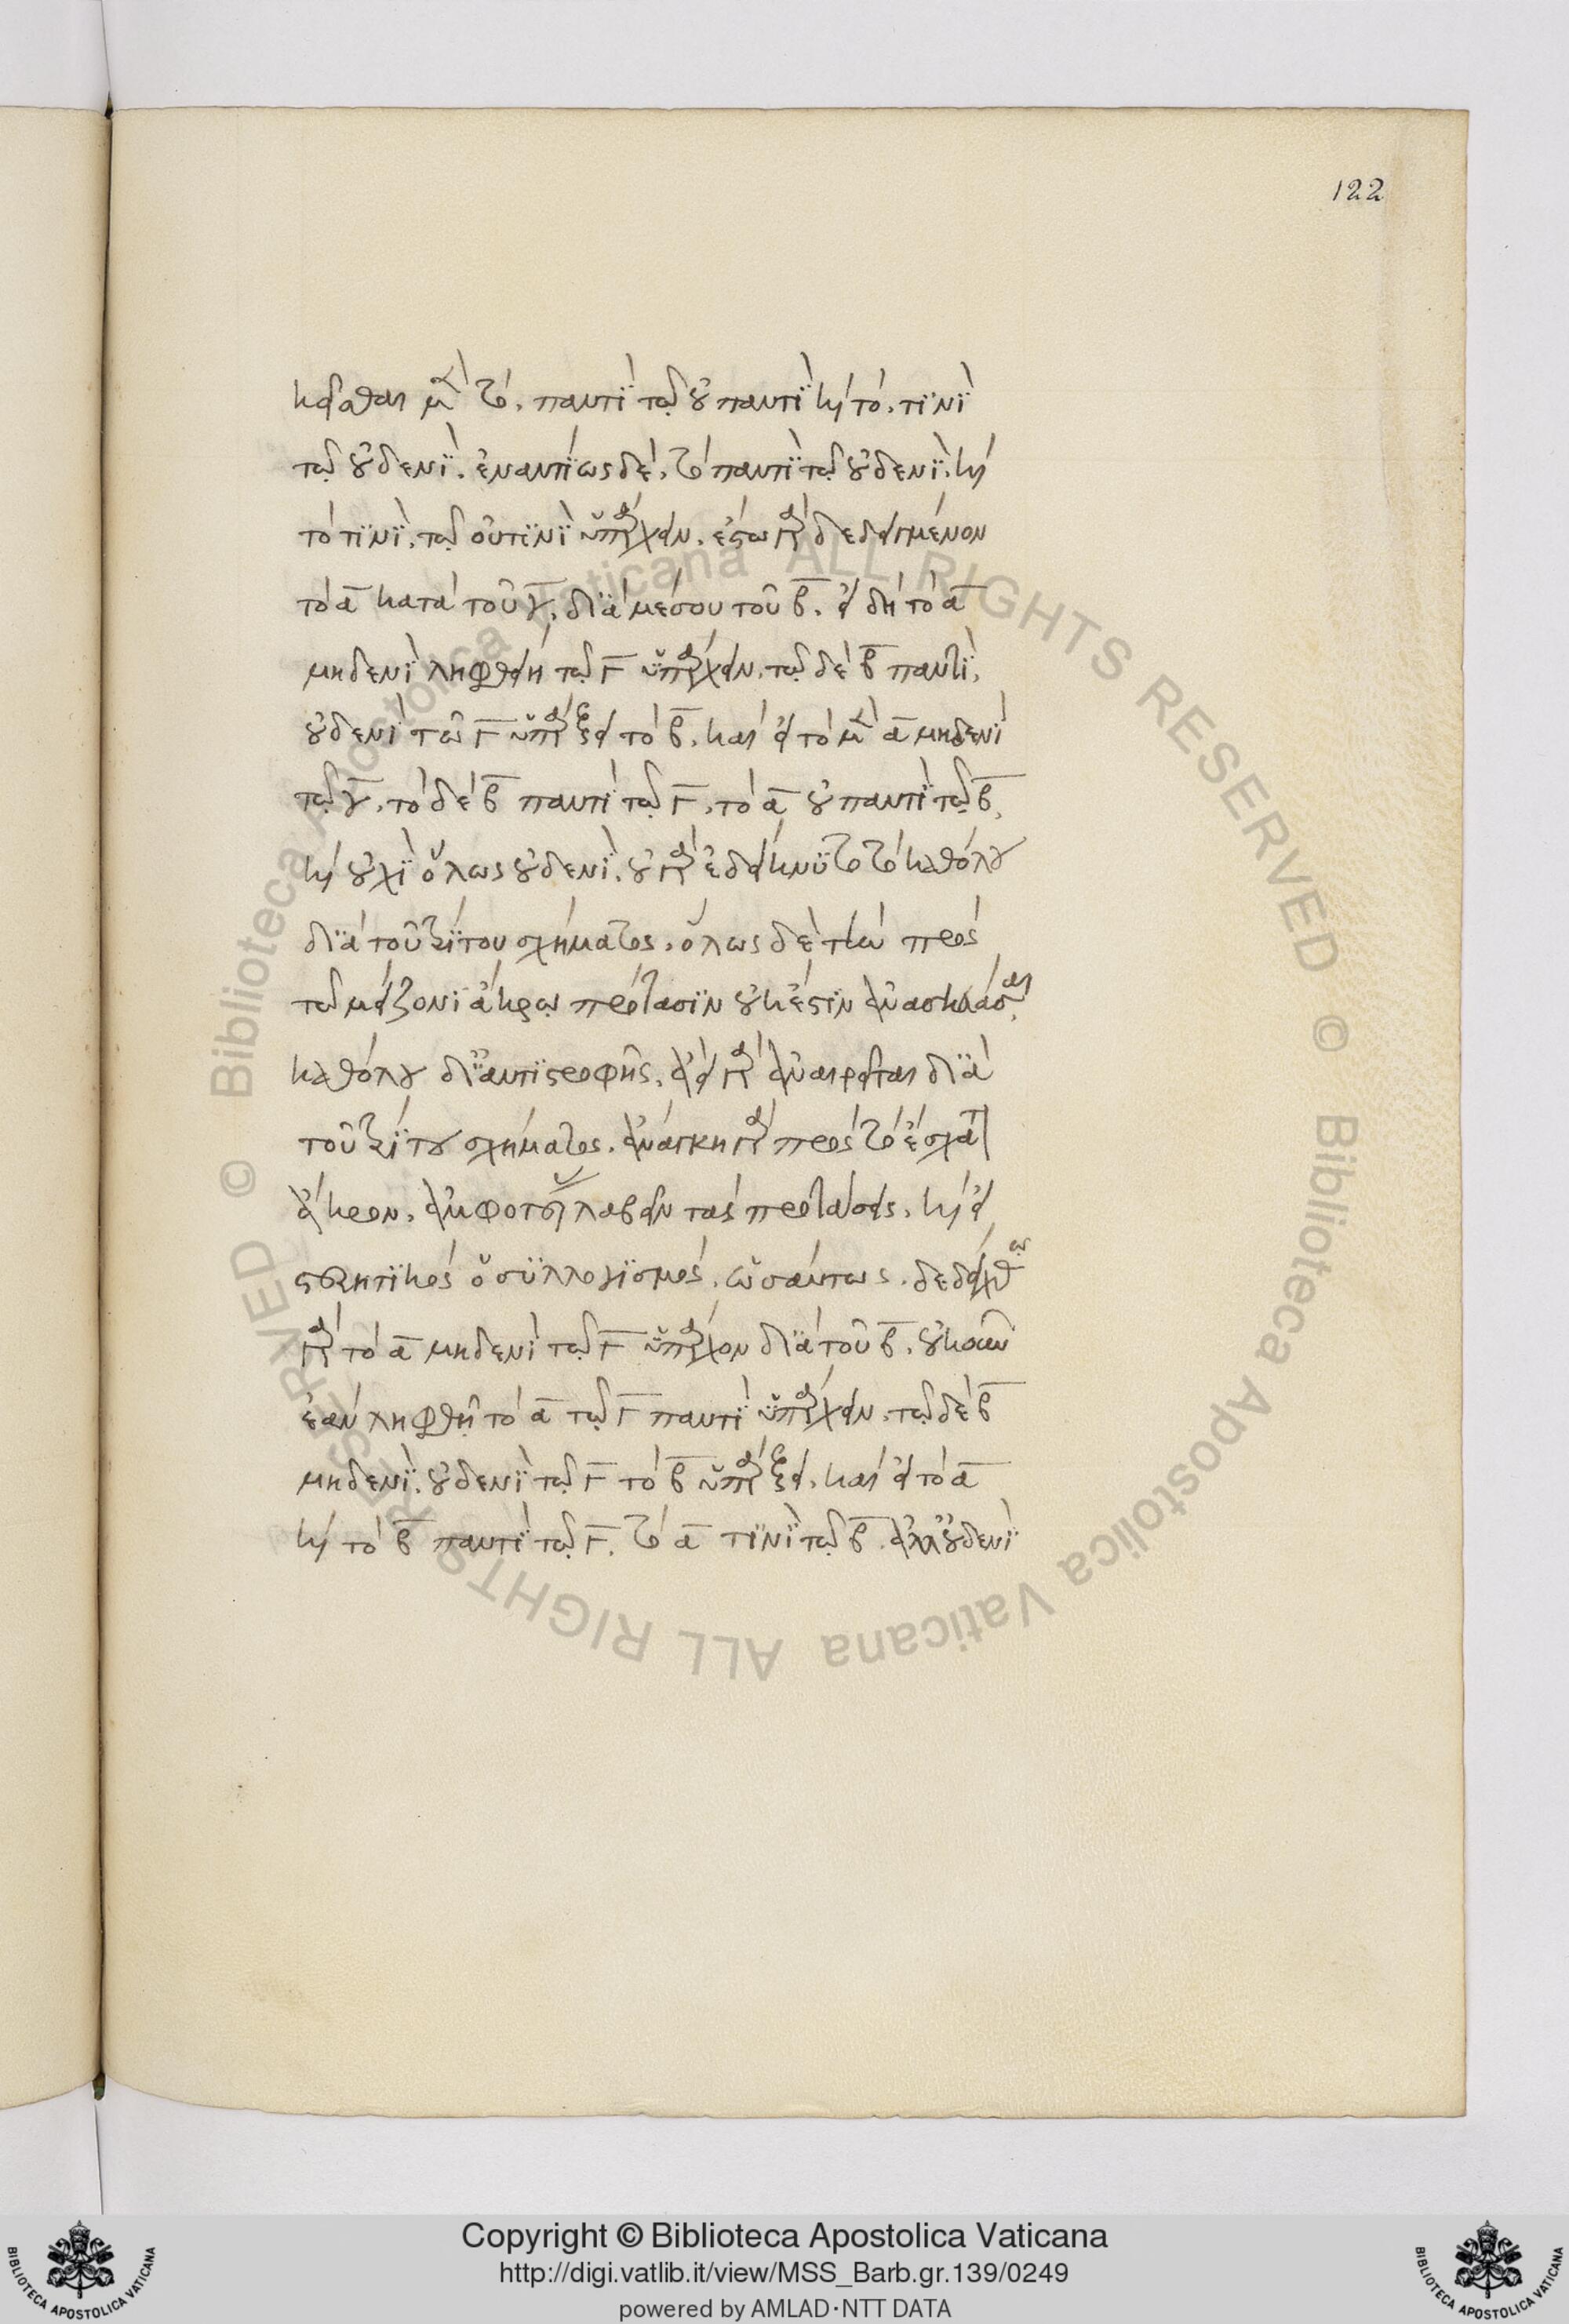 122
κεῖσθαι μὲν τὸ, παντὶ τῷ οὐ παντὶ καὶ τὸ, τινὶ
τῷ οὐδενί. ἐναντίως δὲ, τὸ παντὶ τῷ οὐδενὶ, καὶ
τὸ τινὶ, τῷ οὐ τινὶ ὑπάρχειν. ἔστω γὰρ δεδειγμένον
τὸ α κατὰ τοῦ γ, διὰ μέσου τοῦ β. εἰ δὴ τὸ α
μηδενὶ ληφθείη τῷ Γ ὑπάρχειν, τῷ δὲ β παντὶ,
οὐδενὶ τῶ Γ ὑπάρξει τὸ β. καὶ εἰ τὸ μὲν α μηδενὶ
τῷ γ, τὸ δὲ β παντὶ τῷ Γ, τὸ α οὐ παντὶ τῷ β,
καὶ οὐχὶ ὅλως οὐδενί. οὐ γὰρ ἐδείκνυτο τὸ καθόλου
διὰ τοῦ τρίτου σχήματος. ὅλως δὲ τὴν πρὸς
τῷ μείζονι ἄκρῳ πρότασιν οὐκ ἔστιν ἀνασκευάσαι
καθόλου δι' ἀντιστροφῆς. ἀεὶ γὰρ ἀναιρεῖται διὰ
τοῦ τρίτου σχήματος. ἀνάγκη γὰρ πρὸς τὸ ἔσχατ
ἄκρον, ἀμφοτέρας λαβεῖν τὰς προτάσεις. καὶ εἰ
στερητικὸς ὁ συλλογισμὸς, ὡσαύτως. δεδείχθω
γὰρ τὸ α μηδενὶ τῷ Γ ὑπάρχον διὰ τοῦ β. οὐκοῦν
ἐὰν ληφθῇ τὸ α τῷ Γ παντὶ ὑπάρχειν, τῷ δὲ β
μηδενὶ, οὐδενὶ τῷ Γ τὸ β ὑπάρξει. καὶ εἰ τὸ α
καὶ τὸ β παντὶ τῷ Γ. τὸ α τινὶ τῷ β. ἀλλ' οὐδενὶ
© Biblioteca Apostolica Vaticana ALL RIGHTS RESERVED
© Biblioteca Apostolica Vaticana ALL RIGHTS RESERVED
Copyright © Biblioteca Apostolica Vaticana
http://digi.vatlib.it/view/MSS_Barb.gr.139/0249
powered by AMLAD·NTT DATA
BIBLIOTECA APOSTOLICA VATICANA
BIBLIOTECA APOSTOLICA VATICANA